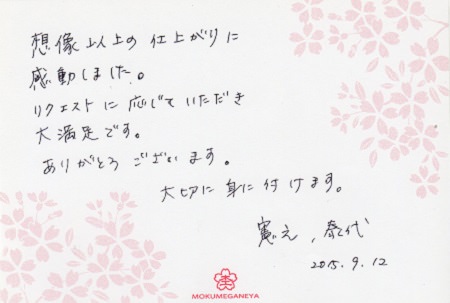 想像以上の仕上がりに
感動しました。
リクエストに応じていただき
大満足です。
ありがとうございます。
大切に身に付けます。
憲之、泰代
2015.9.12
MOKUMEGANEYA